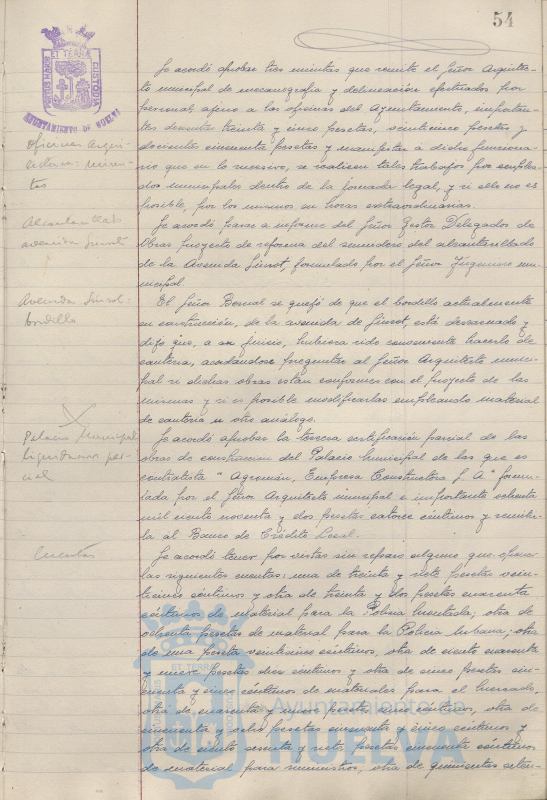 54
PORTUS MARIS ET TERRÆ CUSTODIA
AYUNTAMIENTO DE HUELVA
Se acordó aprobar tres minutas que remite el Señor Arquitec-
to municipal de mecanografía y delineación efectuados por
personal ajeno a las oficinas del Ayuntamiento, importan-
tes treinta y cinco pesetas, veinticinco pesetas y
doscientas cincuenta pesetas y manifestar á dicho funciona-
rio que en lo sucesivo, se realicen tales trabajos por emplea-
dos municipales dentro de la jornada legal, y si ello no es
posible, por los mismos en horas extraordinarias.
Oficina Arqui-
minu-
tas
Se acordó pasar a informe del Señor Gestor Delegado de
Obras proyecto de reforma del del alcantarillado
de la Avenida formulado por el Señor Ingeniero mu-
nicipal.
Alcantarillado
avenida
El Señor Bernal se quejó de que el bordillo actualmente
en construcción, de la avenida de está y
dijo que, a su juicio, hubiera sido conveniente hacerlo de
cantería, acordándose preguntar al Señor Arquitecto munici-
pal si dichas obras están conformes con el proyecto de las
mismas y si es posible modificarlas empleando material
de cantería u otro análogo.
Avenida
bordillo
Se acordó aprobar la tercera certificación parcial de las
obras de construcción del Palacio Municipal de las que es
contratista "Agroman, Empresa Constructora S. A" formu-
lada por el Señor Arquitecto municipal e importante ochenta
mil ciento noventa y dos pesetas catorce céntimos y remitir-
la al Banco de Crédito Local.
Palacio Municipal
liquidaciones par-
cial
Se acordó tener por vistas sin reparo alguno que oponer
las siguientes cuentas: una de treinta y siete pesetas vein-
ticinco céntimos y otra de treinta y dos pesetas cuarenta
céntimos de material para la Policía Montada; otra de
ochenta pesetas de material para la Policía Urbana; otra
de una peseta veinticinco céntimos, otra de ciento cuarenta
y nueve pesetas diez céntimos y otra de cinco pesetas cin-
cuenta y cinco céntimos de materiales para el Mercado,
otra de cuarenta y nueve pesetas céntimos, otra de
cincuenta y ocho pesetas cincuenta y cinco céntimos y
otra de ciento sesenta y siete pesetas cincuenta céntimos
de material para suministros, otra de quinientas seten-
Cuentas
Ayuntamiento de
HUELVA